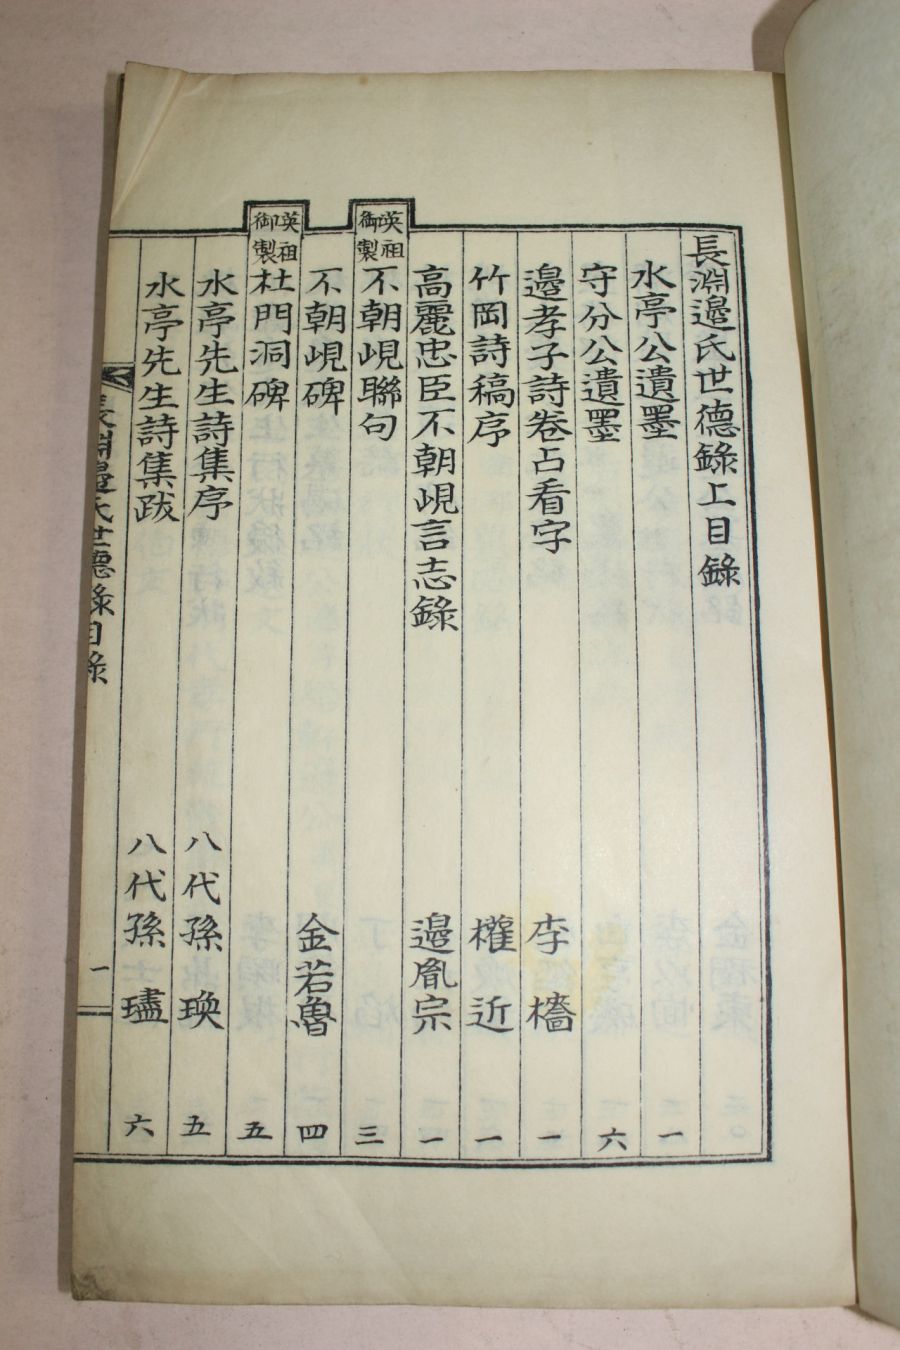 長淵邊氏世德錄上目錄
水亭公遺墨 一
守分公遺墨 六
邊孝子詩卷占看字 李檣 一
竹岡詩稿序 權近 一
高麗忠臣不朝峴言志錄 邊胤宗 一
英祖御製 不朝峴聯句 三
不朝峴碑 金若魯 四
英祖御製 杜門洞碑 五
水亭先生詩集序 八代孫 瑍 五
水亭先生詩集跋 八代孫 璶 六
長淵邊氏世德錄目錄 一